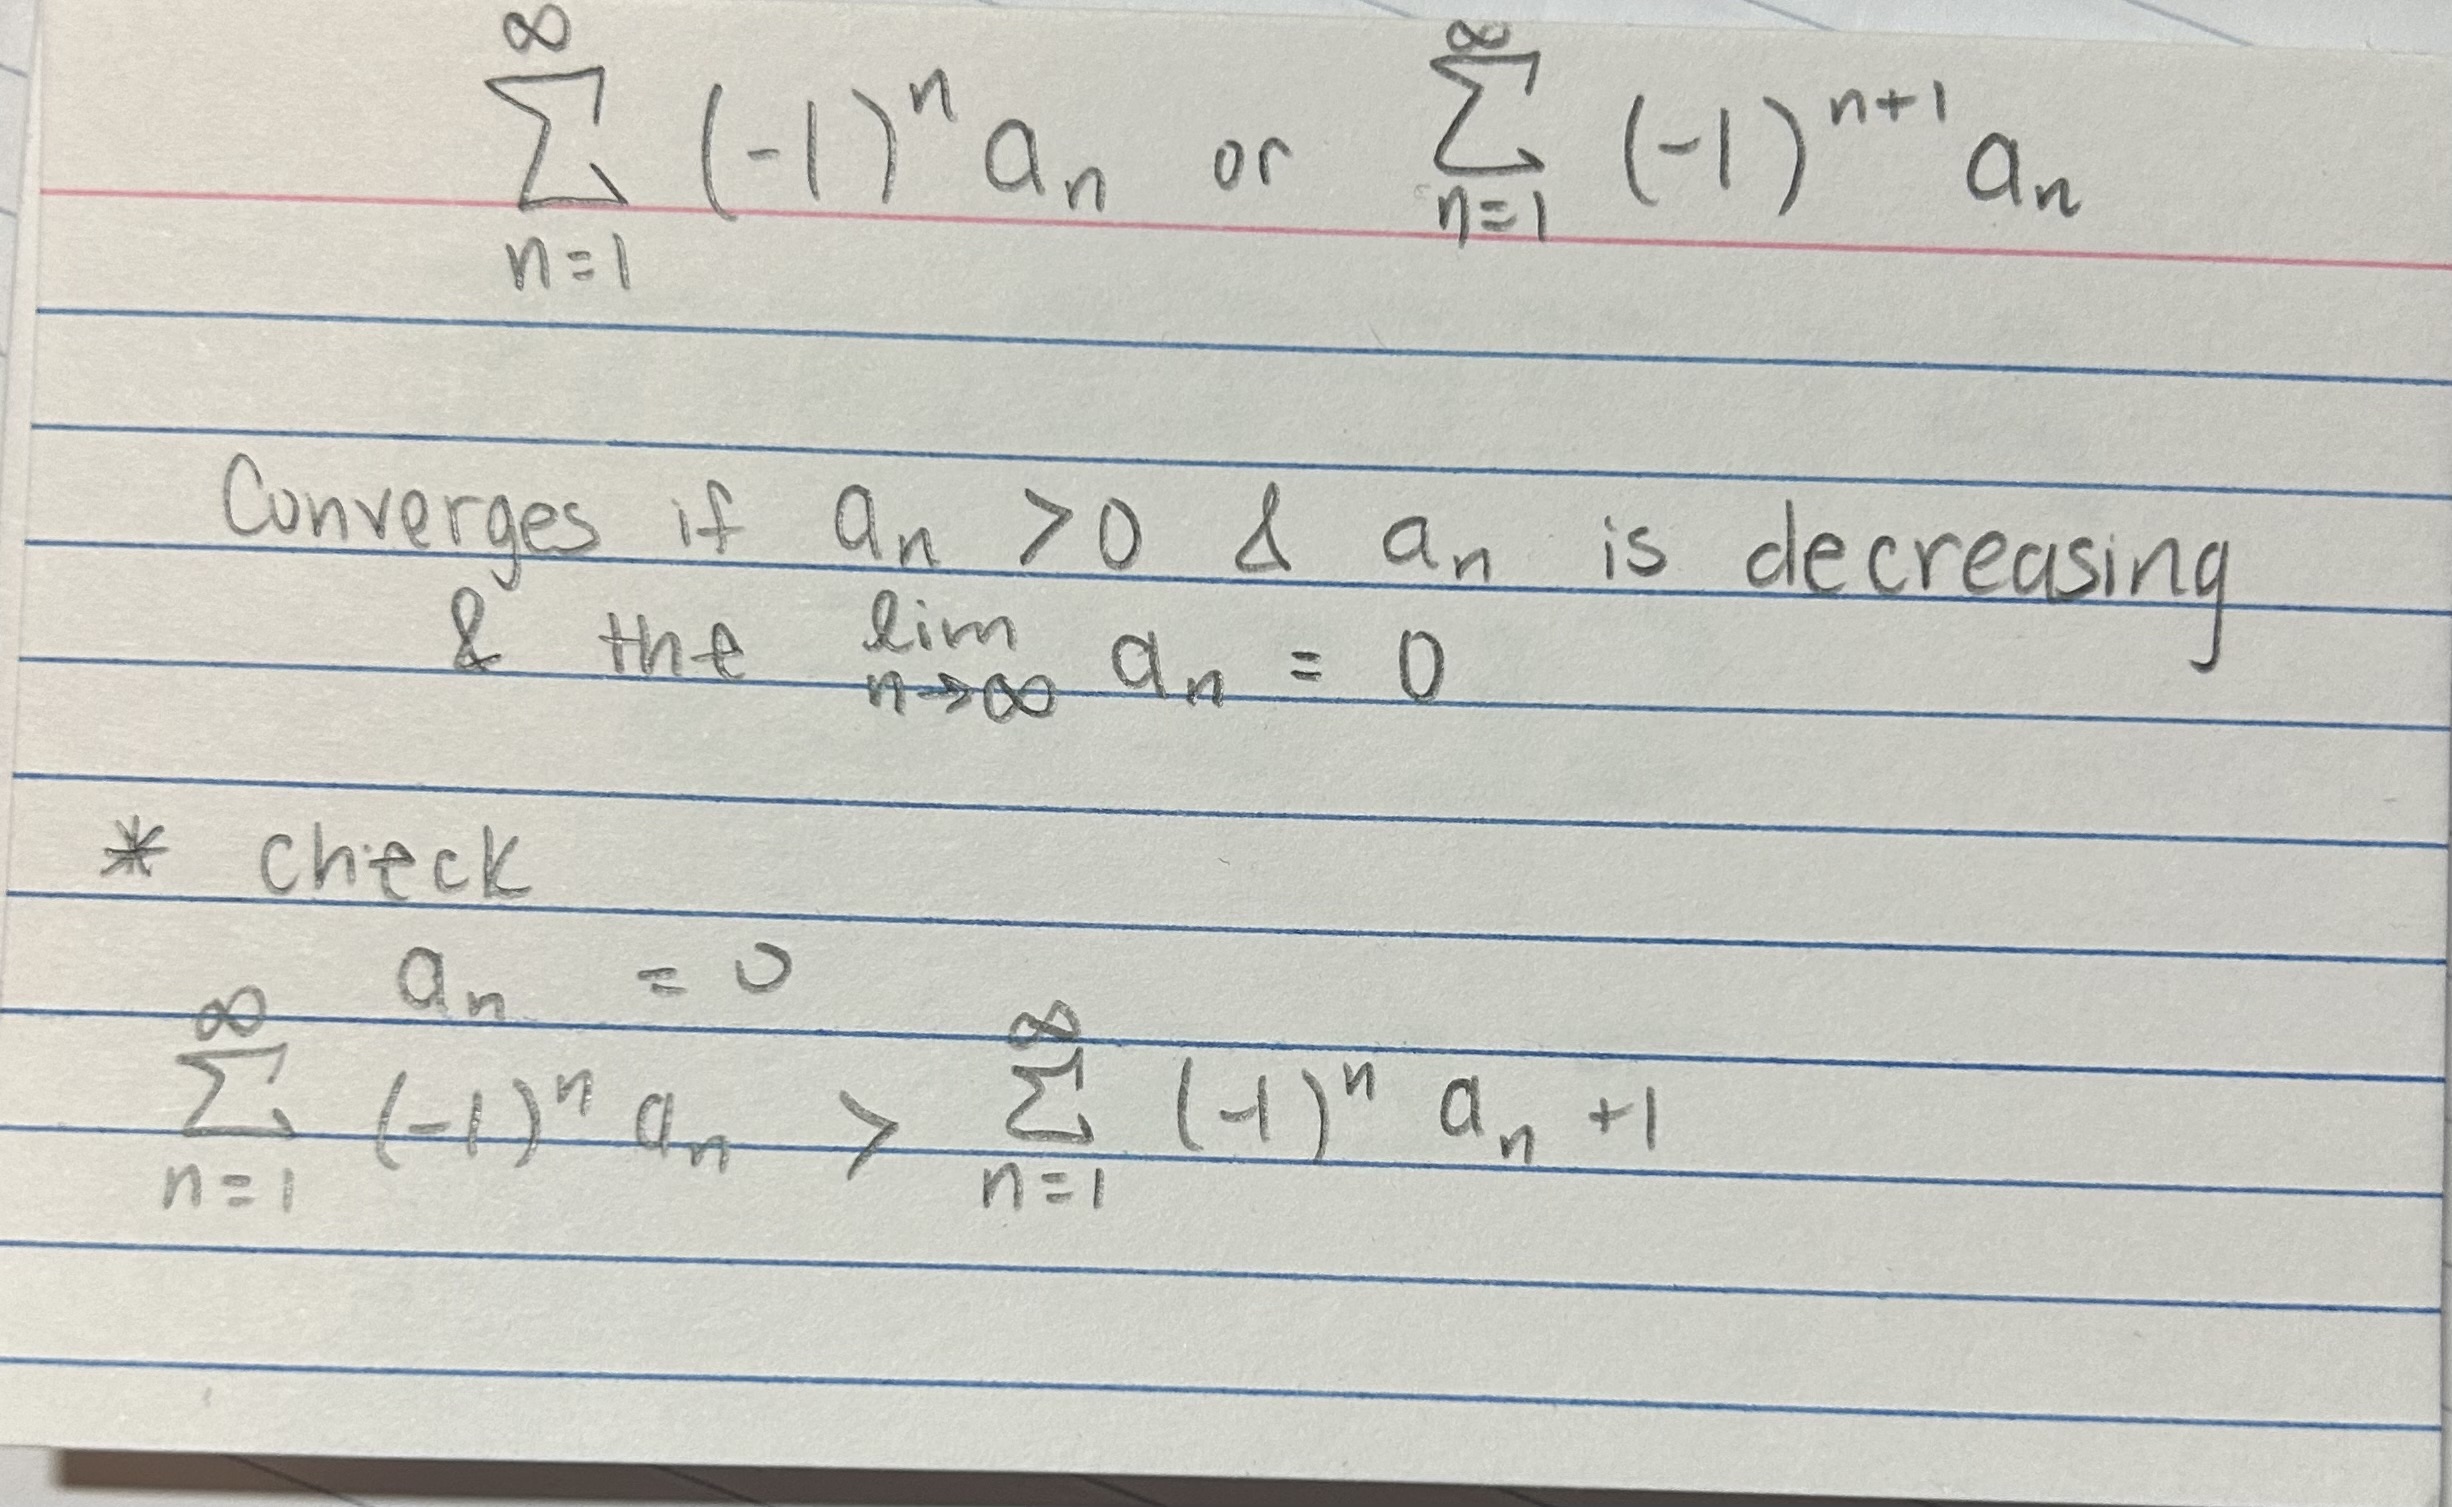 ∞ ∑ n=1 (-1)^n a_n or ∞ ∑ n=1 (-1)^{n+1} a_n
Converges if a_n > 0 & a_n is decreasing
& the lim n→∞ a_n = 0
* check
a_n = 0
∞ ∑ n=1 (-1)^n a_n > ∞ ∑ n=1 (-1)^n a_n +1